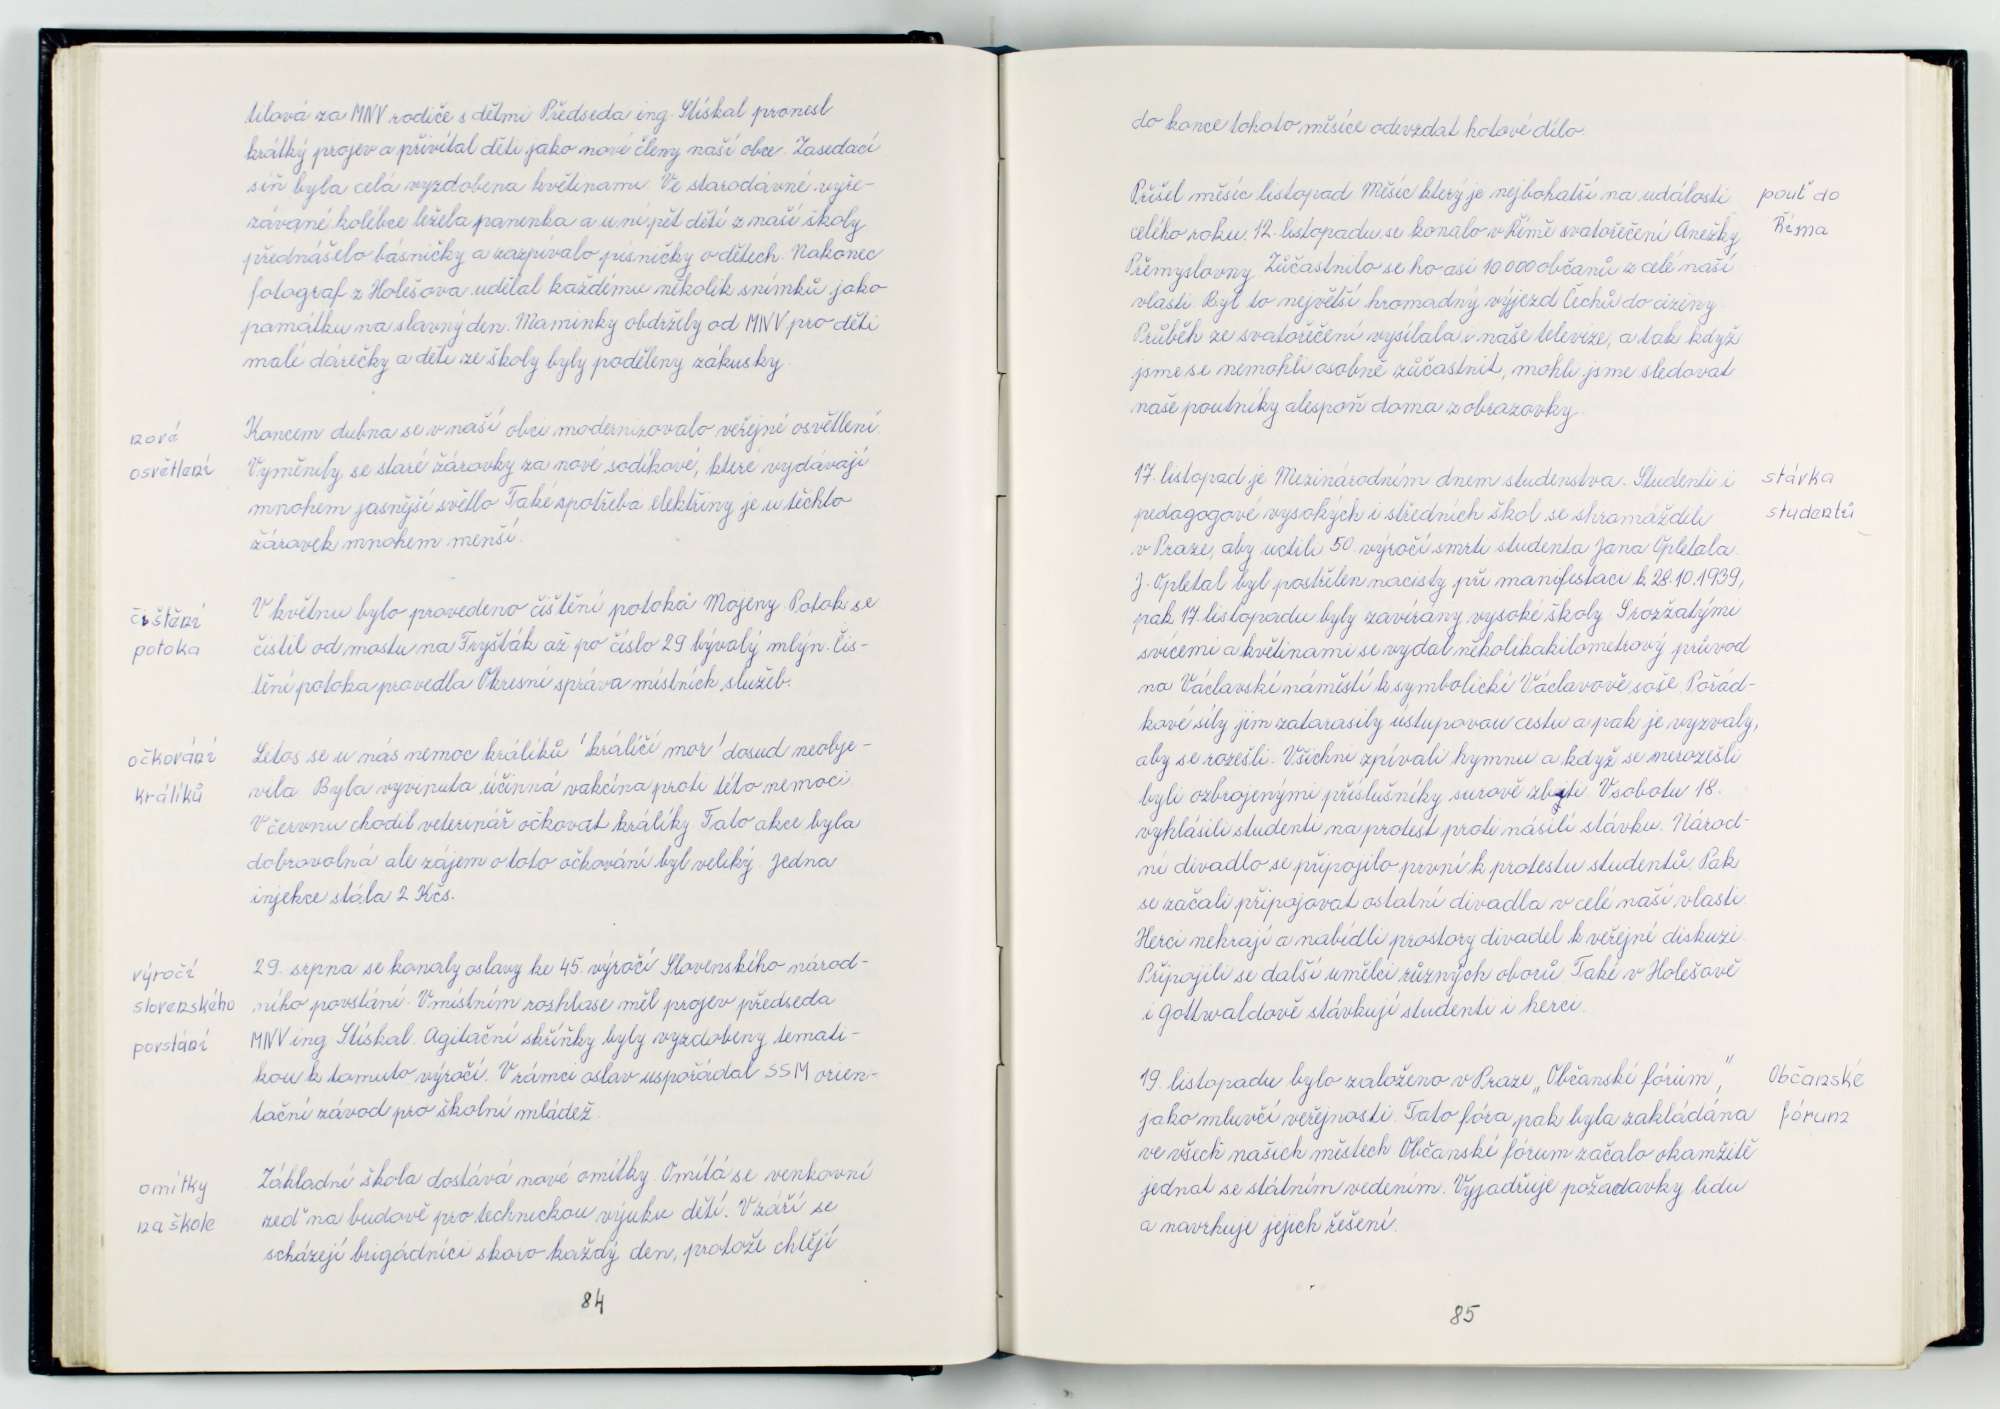 tilová za MNV rodiče s dětmi Předseda ing. Stískal pronesl
krátký projev a přivítal děti jako nové členy naší obce. Zasedací
síň byla celá vyzdobena květinami. Ve starodávné vyře-
závané kolébce ležela panenka a u ní pět dětí z naší školy
přednášelo básničky a zazpívalo písničky o dětech. Nakonec
fotograf z Holešova udělal každému několik snímků jako
památku na slavný den. Maminky obdržely od MNV pro děti
malé dárečky a děti ze školy byly poděleny zákusky.
nové
osvětlení
Koncem dubna se v naší obci modernizovalo veřejné osvětlení.
Vyměnily se staré žárovky za nové sodíkové, které vydávají
mnohem jasnější světlo Také spotřeba elektřiny je u těchto
žárovek mnohem menší.
čištění
potoka
V květnu bylo provedeno čištění potoka Mojeny. Potok se
čistil od mostu na Fryšták až po číslo 29 bývalý mlýn. Čis-
tění potoka provedla Okresní správa místních služeb.
očkování
králíků
Letos se u nás nemoc králíků 'králičí mor' dosud neobje-
vila. Byla vyvinuta účinná vakcína proti této nemoci.
V červnu chodil veterinář očkovat králíky. Tato akce byla
dobrovolná ale zájem o toto očkování byl veliký. Jedna
injekce stála 2 Kčs.
výročí
slovenského
povstání
29. srpna se konaly oslavy ke 45. výročí Slovenského národ-
ního povstání. V místním rozhlase měl projev předseda
MNV ing Stískal. Agitační skříňky byly vyzdobeny temati-
kou k tomuto výročí. V rámci oslav uspořádal SSM orien-
tační závod pro školní mládež.
omítky
na škole
Základní škola dostává nové omítky. Omítá se venkovní
zeď na budově pro technickou výuku dětí. V září se
scházejí brigádníci skoro každý den, protože chtějí
84
do konce tohoto měsíce odevzdat hotové dílo.
pouť do
Říma
Přišel měsíc listopad. Měsíc který je nejbohatší na události
celého roku. 12. listopadu se konalo v Římě svatořečení Anežky
Přemyslovny. Zůčastnilo se ho asi 10 000 občanů z celé naší
vlasti. Byl to největší hromadný výjezd Čechů do ciziny.
Průběh ze svatořečení vysílala i naše televize, a tak když
jsme se nemohli osobně zůčastnit, mohli jsme sledovat
naše poutníky alespoň doma z obrazovky.
stávka
studentů
17. listopad je Mezinárodním dnem studenstva. Studenti i
pedagogové vysokých i středních škol se shromáždili
v Praze, aby uctili 50. výročí smrti studenta Jana Opletala.
J. Opletal byl postřelen nacisty při manifestaci k 28.10.1939,
pak 17. listopadu byly zavírány vysoké školy. S rozžatými
svícemi a květinami se vydal několikakilometrový průvod
na Václavské náměstí k symbolické Václavově soše. Pořád-
kové síly jim zatarasily ústupovou cestu a pak je vyzvaly,
aby se rozešli. Všichni zpívali hymnu a když se nerozešli
byli ozbrojenými příslušníky surově zbiti. V sobotu 18.
vyhlásili studenti na protest proti násilí stávku. Národ-
ní divadlo se připojilo první k protestu studentů. Pak
se začali připojovat ostatní divadla v celé naší vlasti.
Herci nehrají a nabídli prostory divadel k veřejné diskuzi.
Připojili se další umělci různých oborů. Také v Holešově
i Gottwaldově stávkují studenti i herci.
Občanské
fórum
19. listopadu bylo založeno v Praze „Občanské fórum",
jako mluvčí veřejnosti. Tato fóra pak byla zakládána
ve všech našich městech. Občanské fórum začalo okamžitě
jednat se státním vedením. Vyjadřuje požadavky lidu
a navrhuje jejich řešení.
85